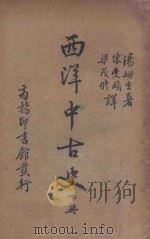 湯姆生著
陳受頤 譯
梁茂修
西洋中古史 冊
商務印書館發行